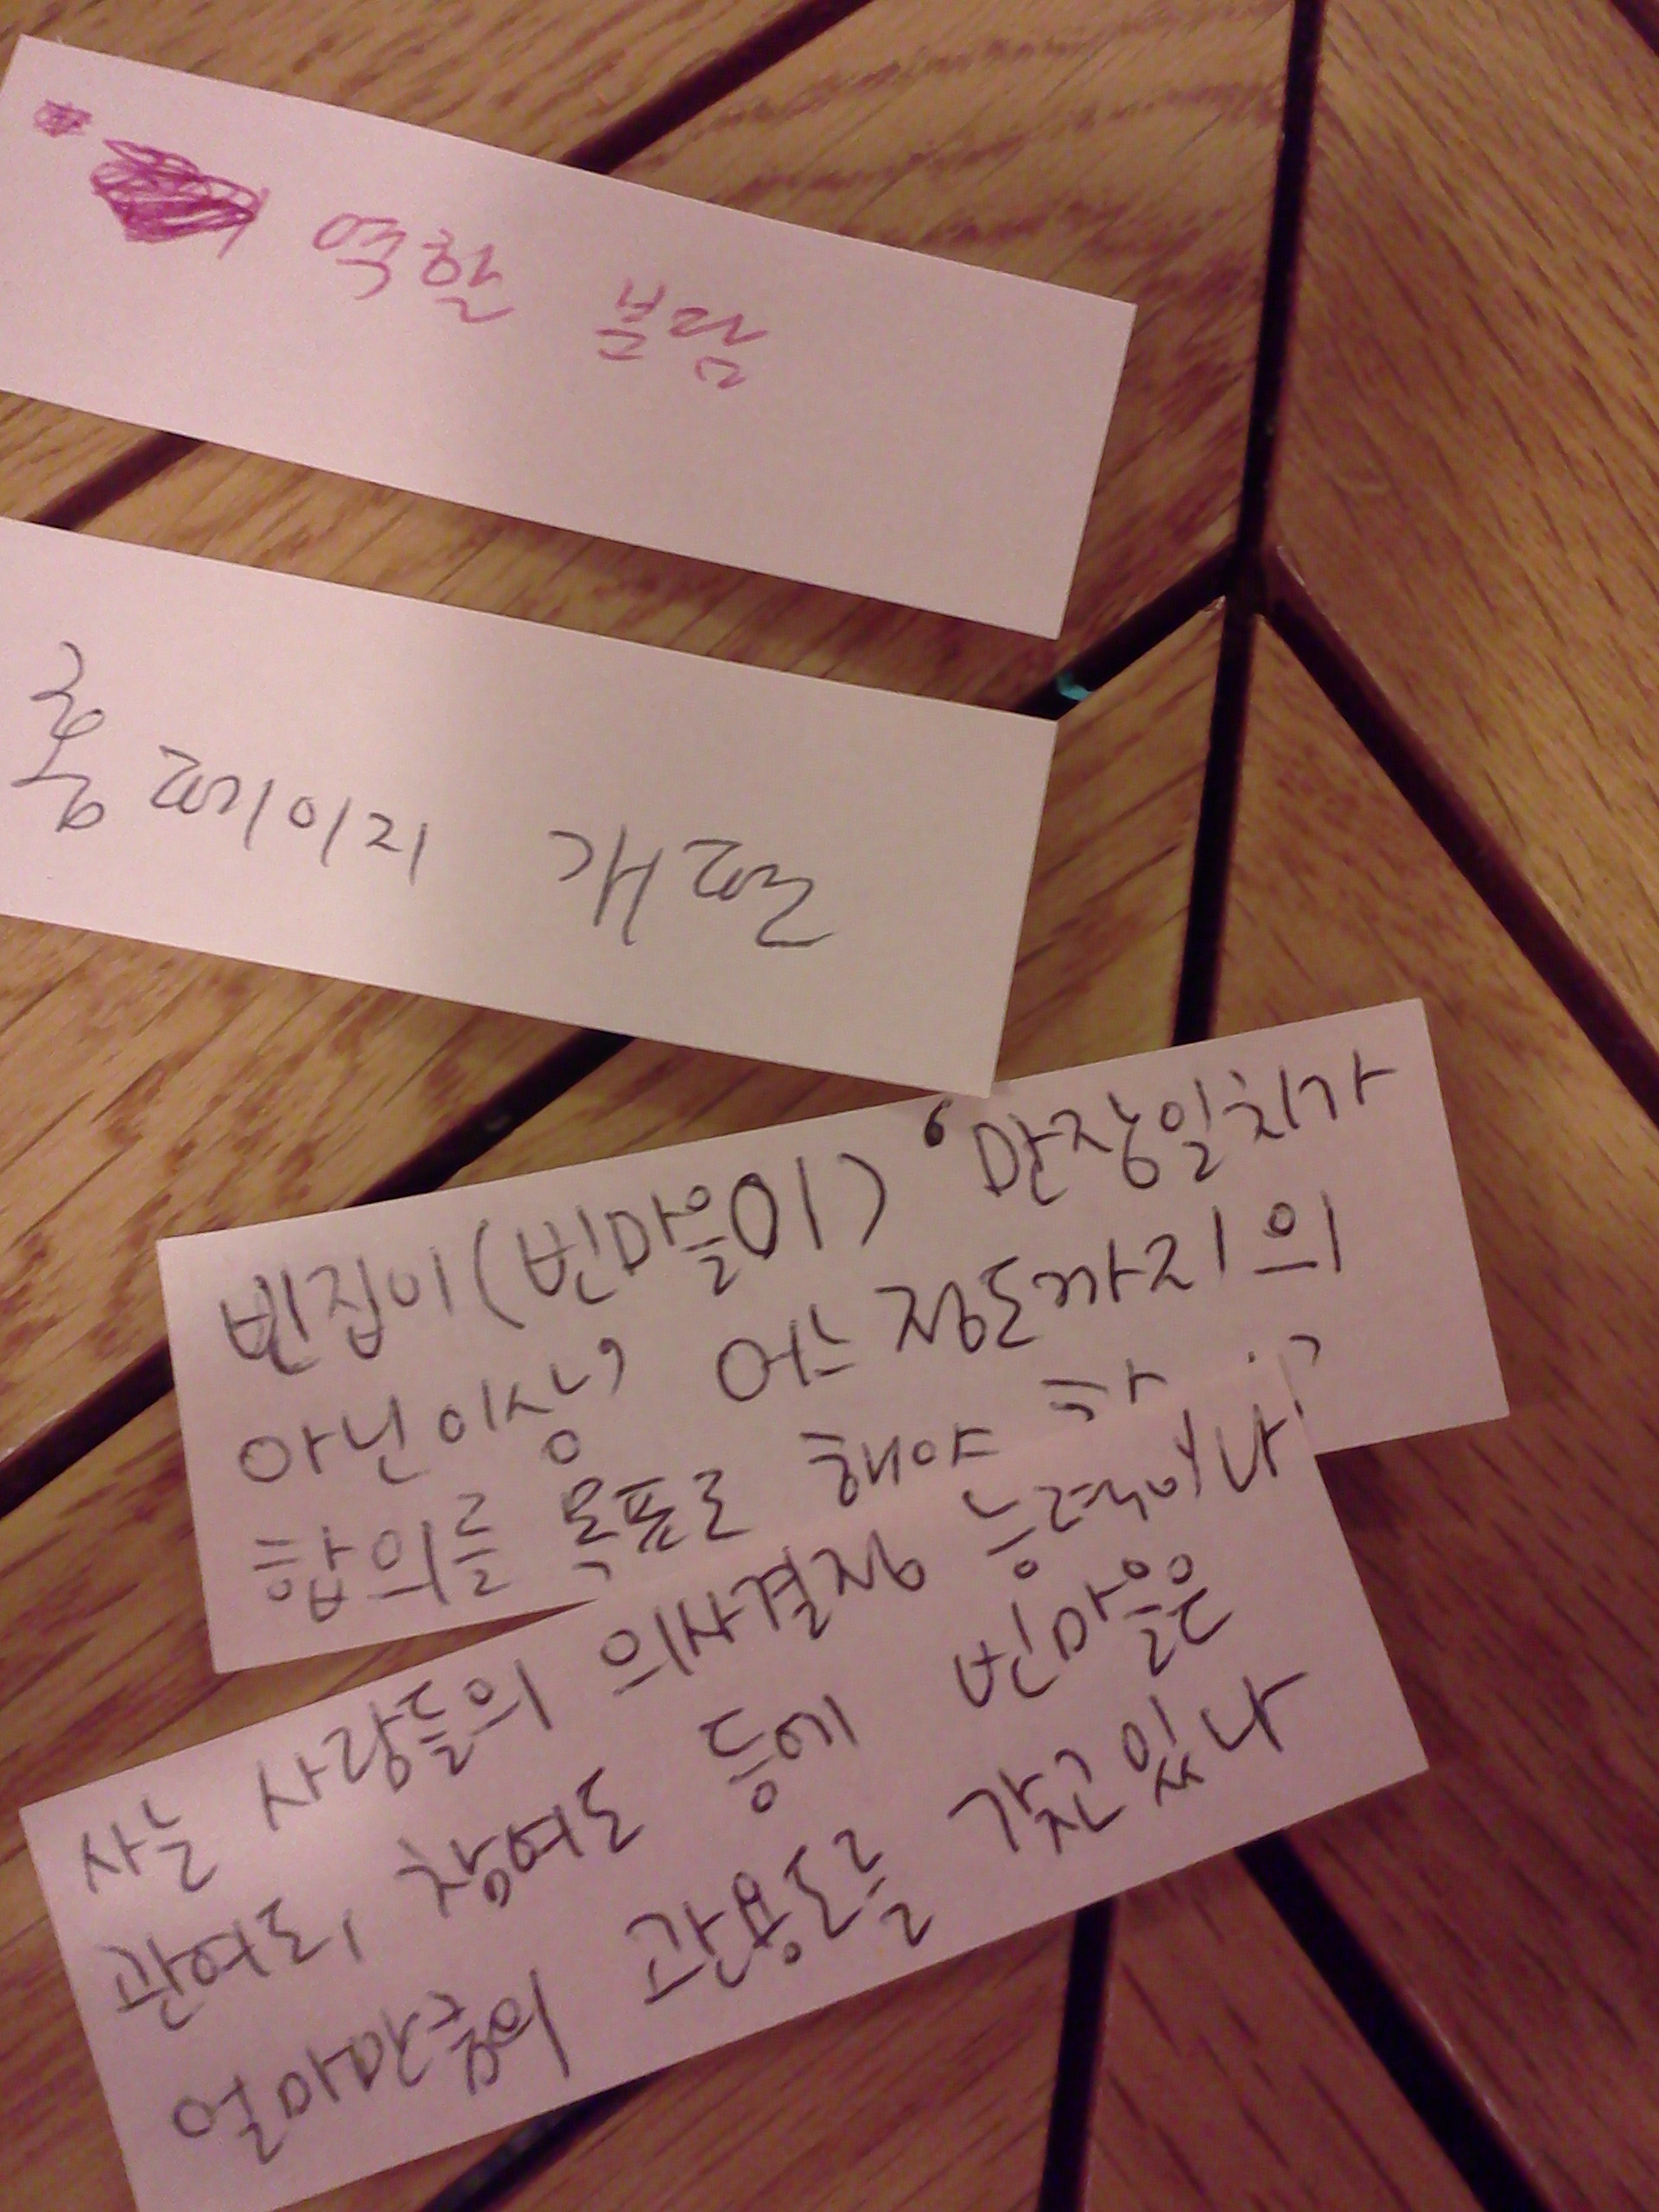 역할 분담
홈페이지 개편
빈집이(빈마을이) '만장일치가
아닌 이상' 어느 정도까지의
합의를 목표로 해야 하
사는 사람들의 의사결정 능력이나
관여도, 참여도 등에 빈마을은
얼마만큼의 관용도를 갖고 있나